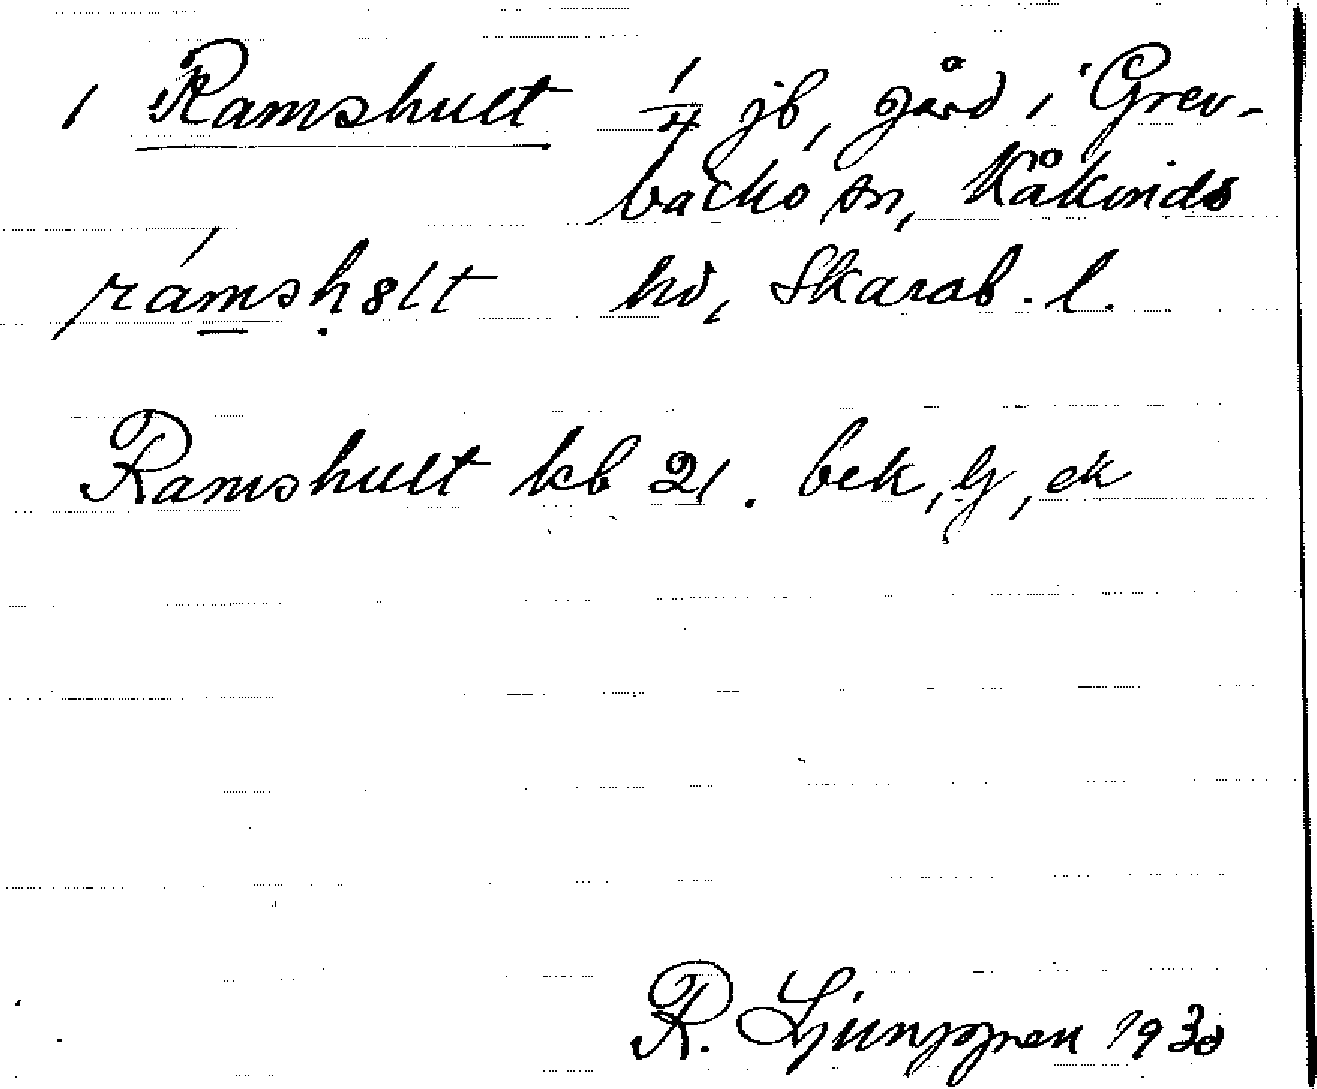 1 Ramshult 1/4 jb, gård i Grev-
backa sn, Kåkinds
ramshult hd, Skarab. l.
Ramshult kb 21. bek, lj, ek
R. Ljunggren 1930